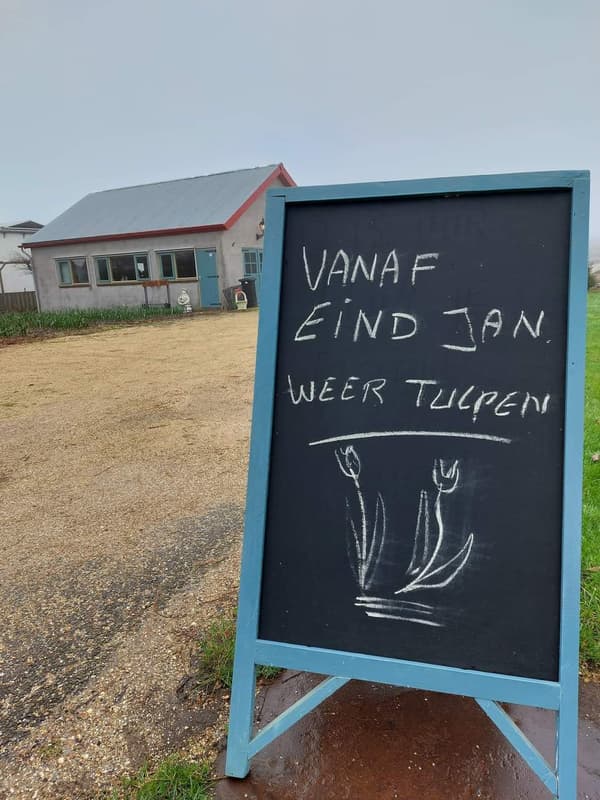 VANAF
EIND JAN.
WEER TULPEN